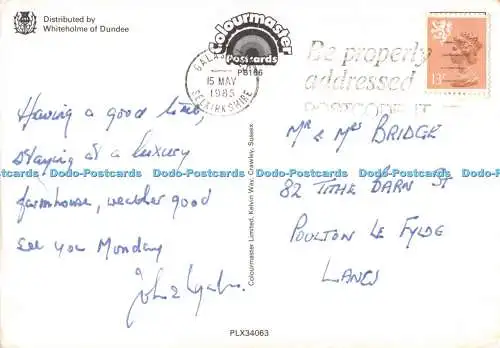 Distributed by
Whiteholme of Dundee
Colourmaster
Postcards
PB166
GALASHIELS
15 MAY
1985
SELKIRKSHIRE
Be properly
addressed
POSTCODE IT
13P
Having a good time,
staying at a luxury
farmhouse, weather good
see you Monday
John &
Mr & Mrs BRIDGE
82 TITHE BARN ST
POULTON LE FYLDE
LANCS
Colourmaster Limited, Kelvin Way, Crawley, Sussex
PLX34063
Dodo-Postcards Dodo-Postcards Dodo-Postcards Dodo-Postcards Dodo-Postcards